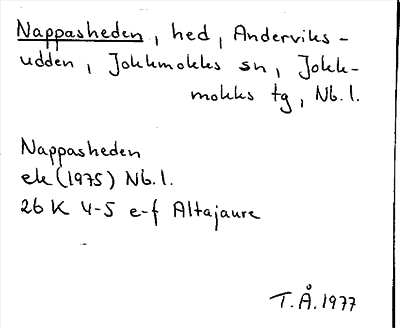 Nappasheden, hed, Anderviks-
udden, Jokkmokks sn, Jokk-
mokks tg, Nb.l.
Nappasheden
ek (1975) Nb.l.
26 K 4-5 e-f Altajaure
T.Å. 1977